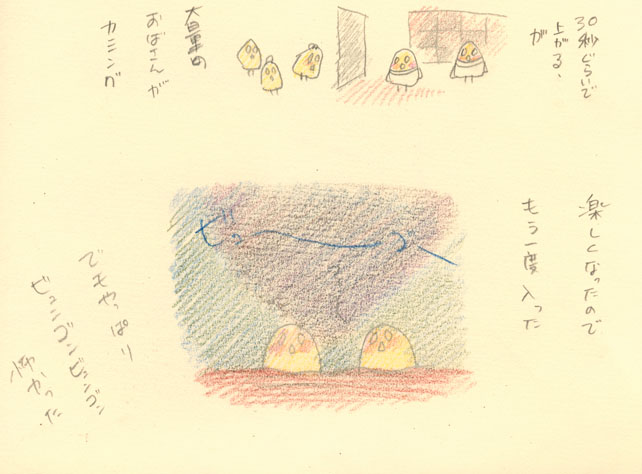 30秒ぐらいで
上がる、
が
大軍の
おばさんが
カミング
楽しくなったので
もう一度入った
ビュ――ゴ――
でもやっぱり
ビュンゴンビュンゴン
怖かった